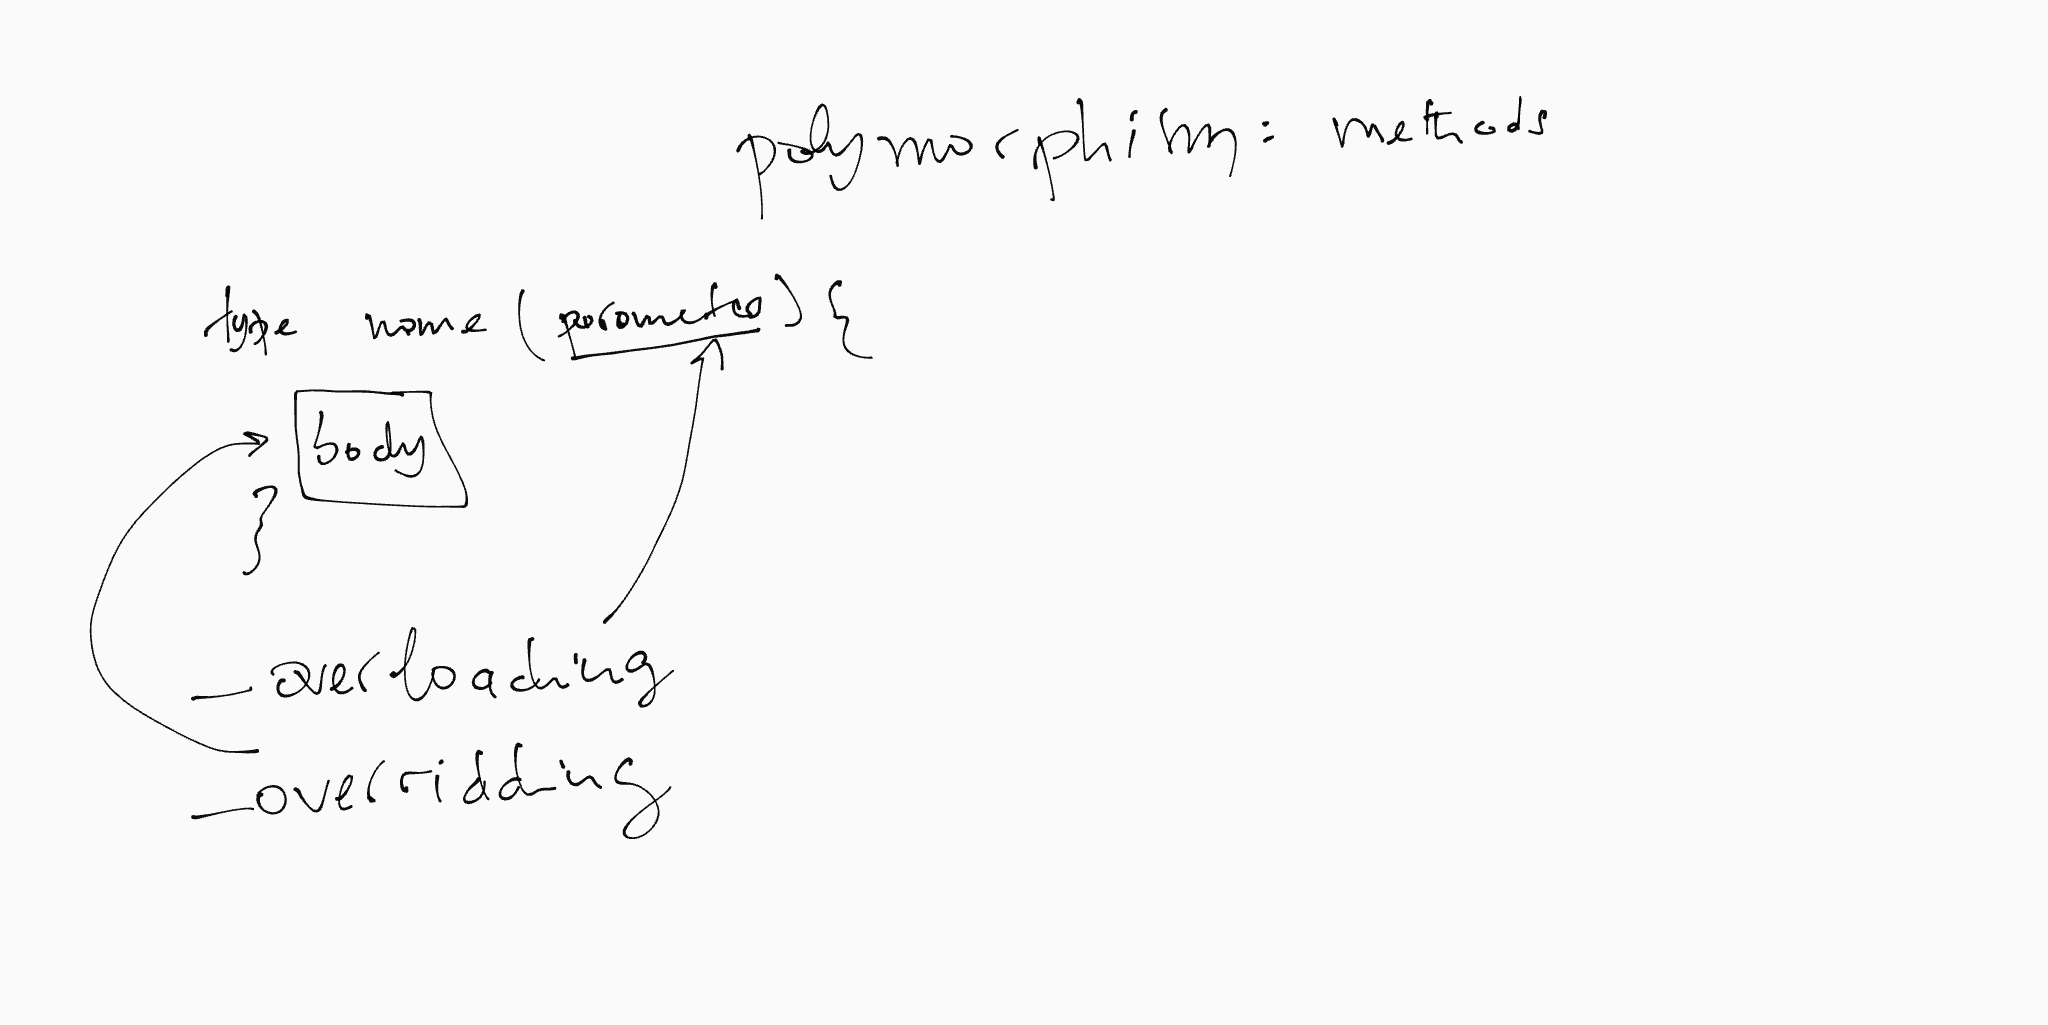 polymorphism: methods
type name (parameters) {
body
}
- overloading
- overridding